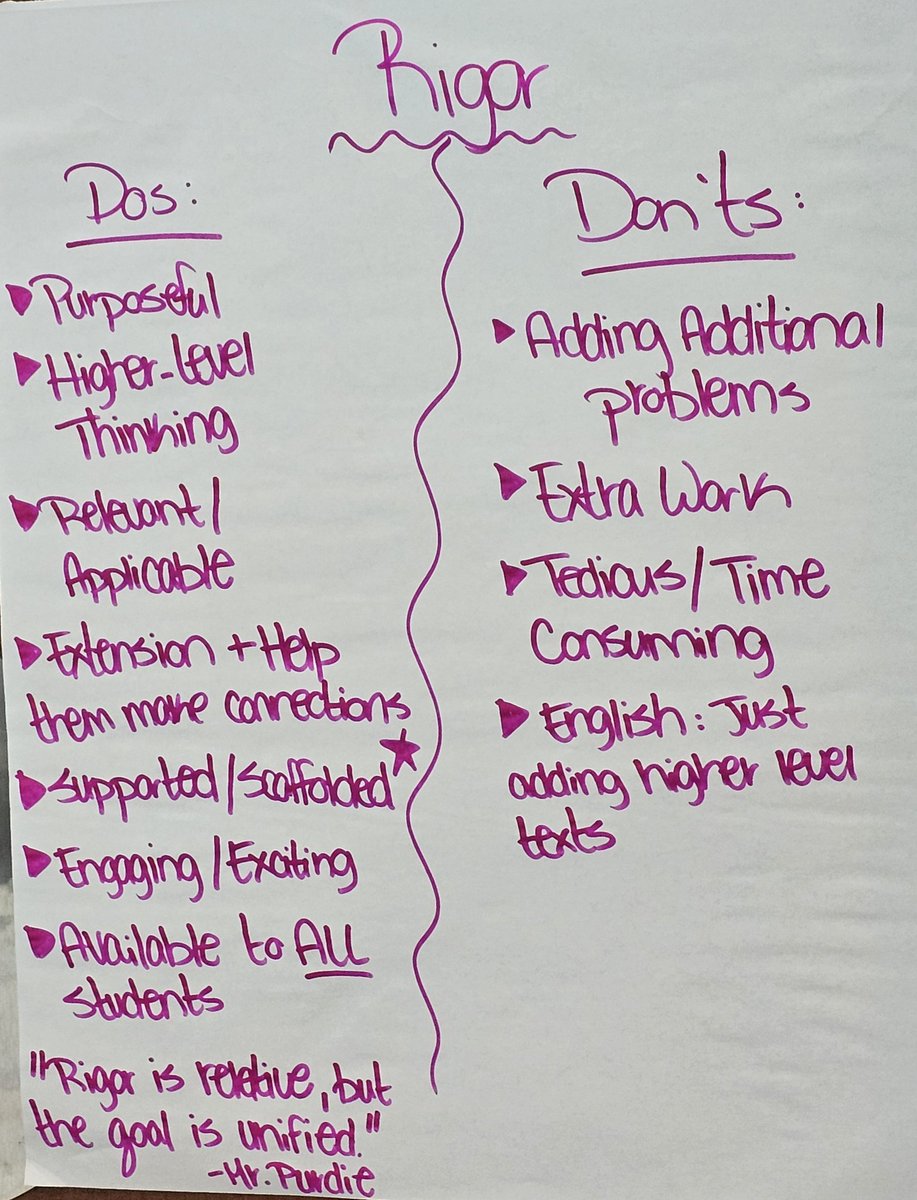 Rigor
Dos:
▶Purposeful
▶Higher-Level
Thinking
▶Relevant/
Applicable
▶Extension + Help
them make connections
▶Supported/Scaffolded★
▶Engaging/Exciting
▶Available to ALL
students
"Rigor is relative, but
the goal is unified."
-Mr. Purdie
Don'ts:
▶Adding Additional
problems
▶Extra Work
▶Tedious/Time
Consuming
▶English: Just
adding higher level
texts